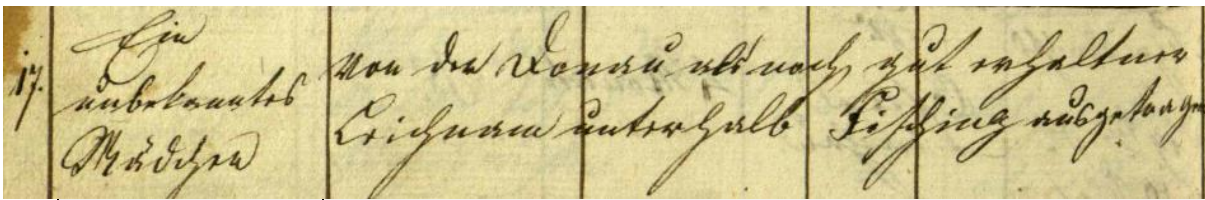 Ein
17. unbekanntes
Mädchen
von der Donau als noch gut erhaltner
Leichnam unterhalb Fisching ausgetragen